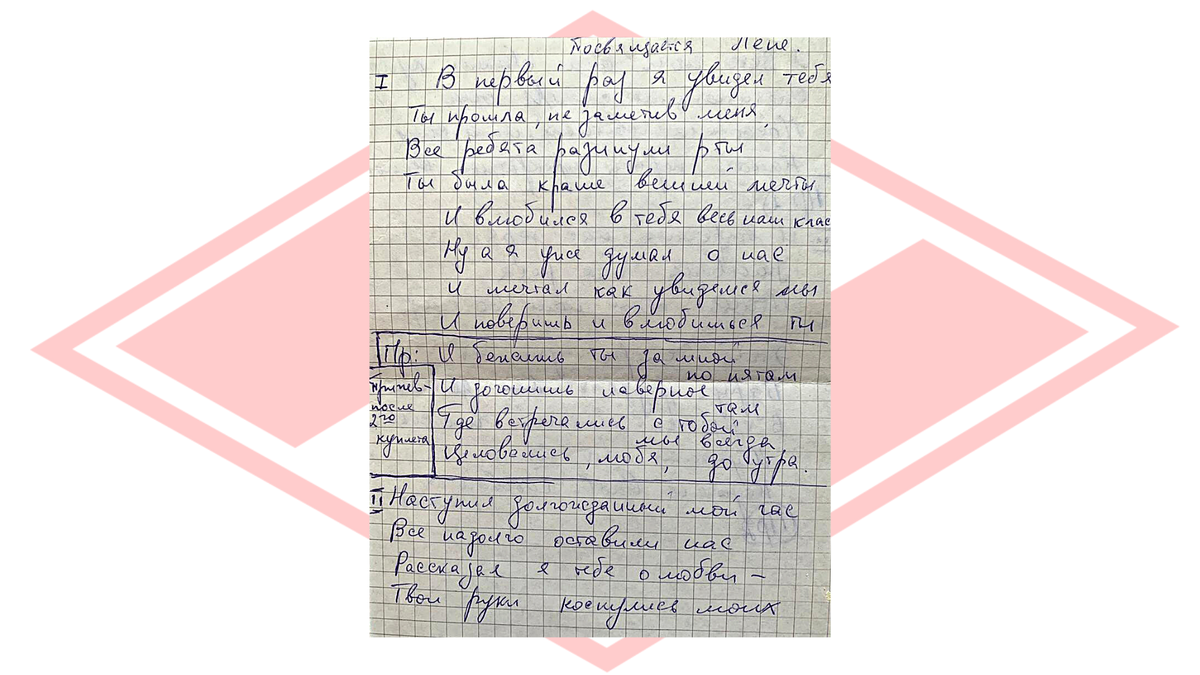 Посвящается Лене.
I В первый раз я увидел тебя
Ты прошла, не заметив меня,
Все ребята разинули рты
Ты была краше вешней мечты
И влюбился в тебя весь наш клас
Ну а я уже думал о нас
И мечтал как увидемся мы
И поверишь и влюбишься ты
Пр: И бежишь ты за мной
по пятам
Припев-
после
2го
куплета
И догонишь наверное
там
Где встречались с тобой
мы всегда
Целовались, любя, до утра.
II Наступил долгожданный мой час
Все надолго оставили нас
Рассказал я тебе о любви –
Твои руки коснулись моих